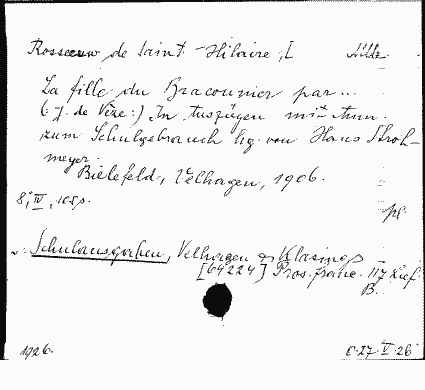 Rosseeuw de Saint-Hilaire, [
La fille du Braconnier par...
(: J. de Vèze :) In Auszügen mit Anm.
zum Schulgebrauch hg. von Hans Stroh-
meyer.
Bielefeld, Velhagen, 1906.
8°, IV, 165 p.
pl.
Schulausgaben, Velhagen & Klasings
[64224] Pros. franc. 117 Lief.
B.
1926.
C. 27. V. 26